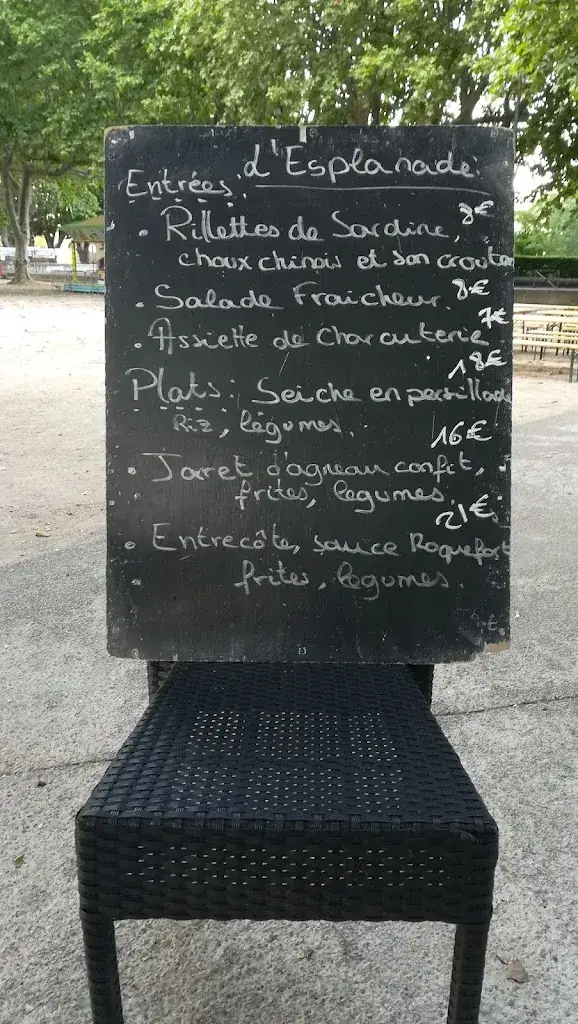 L'Esplanade
Entrées:
8€
• Rillettes de Sardine,
choux chinois et son crouton
8€
• Salade Fraicheur.
7€
• Assiette de Charcuterie
18€
Plats: Seiche en persillade
Riz, légumes.
16€
• Jarret d'agneau confit,
frites, légumes.
21€
• Entrecôte, sauce Roquefort
frites, légumes.